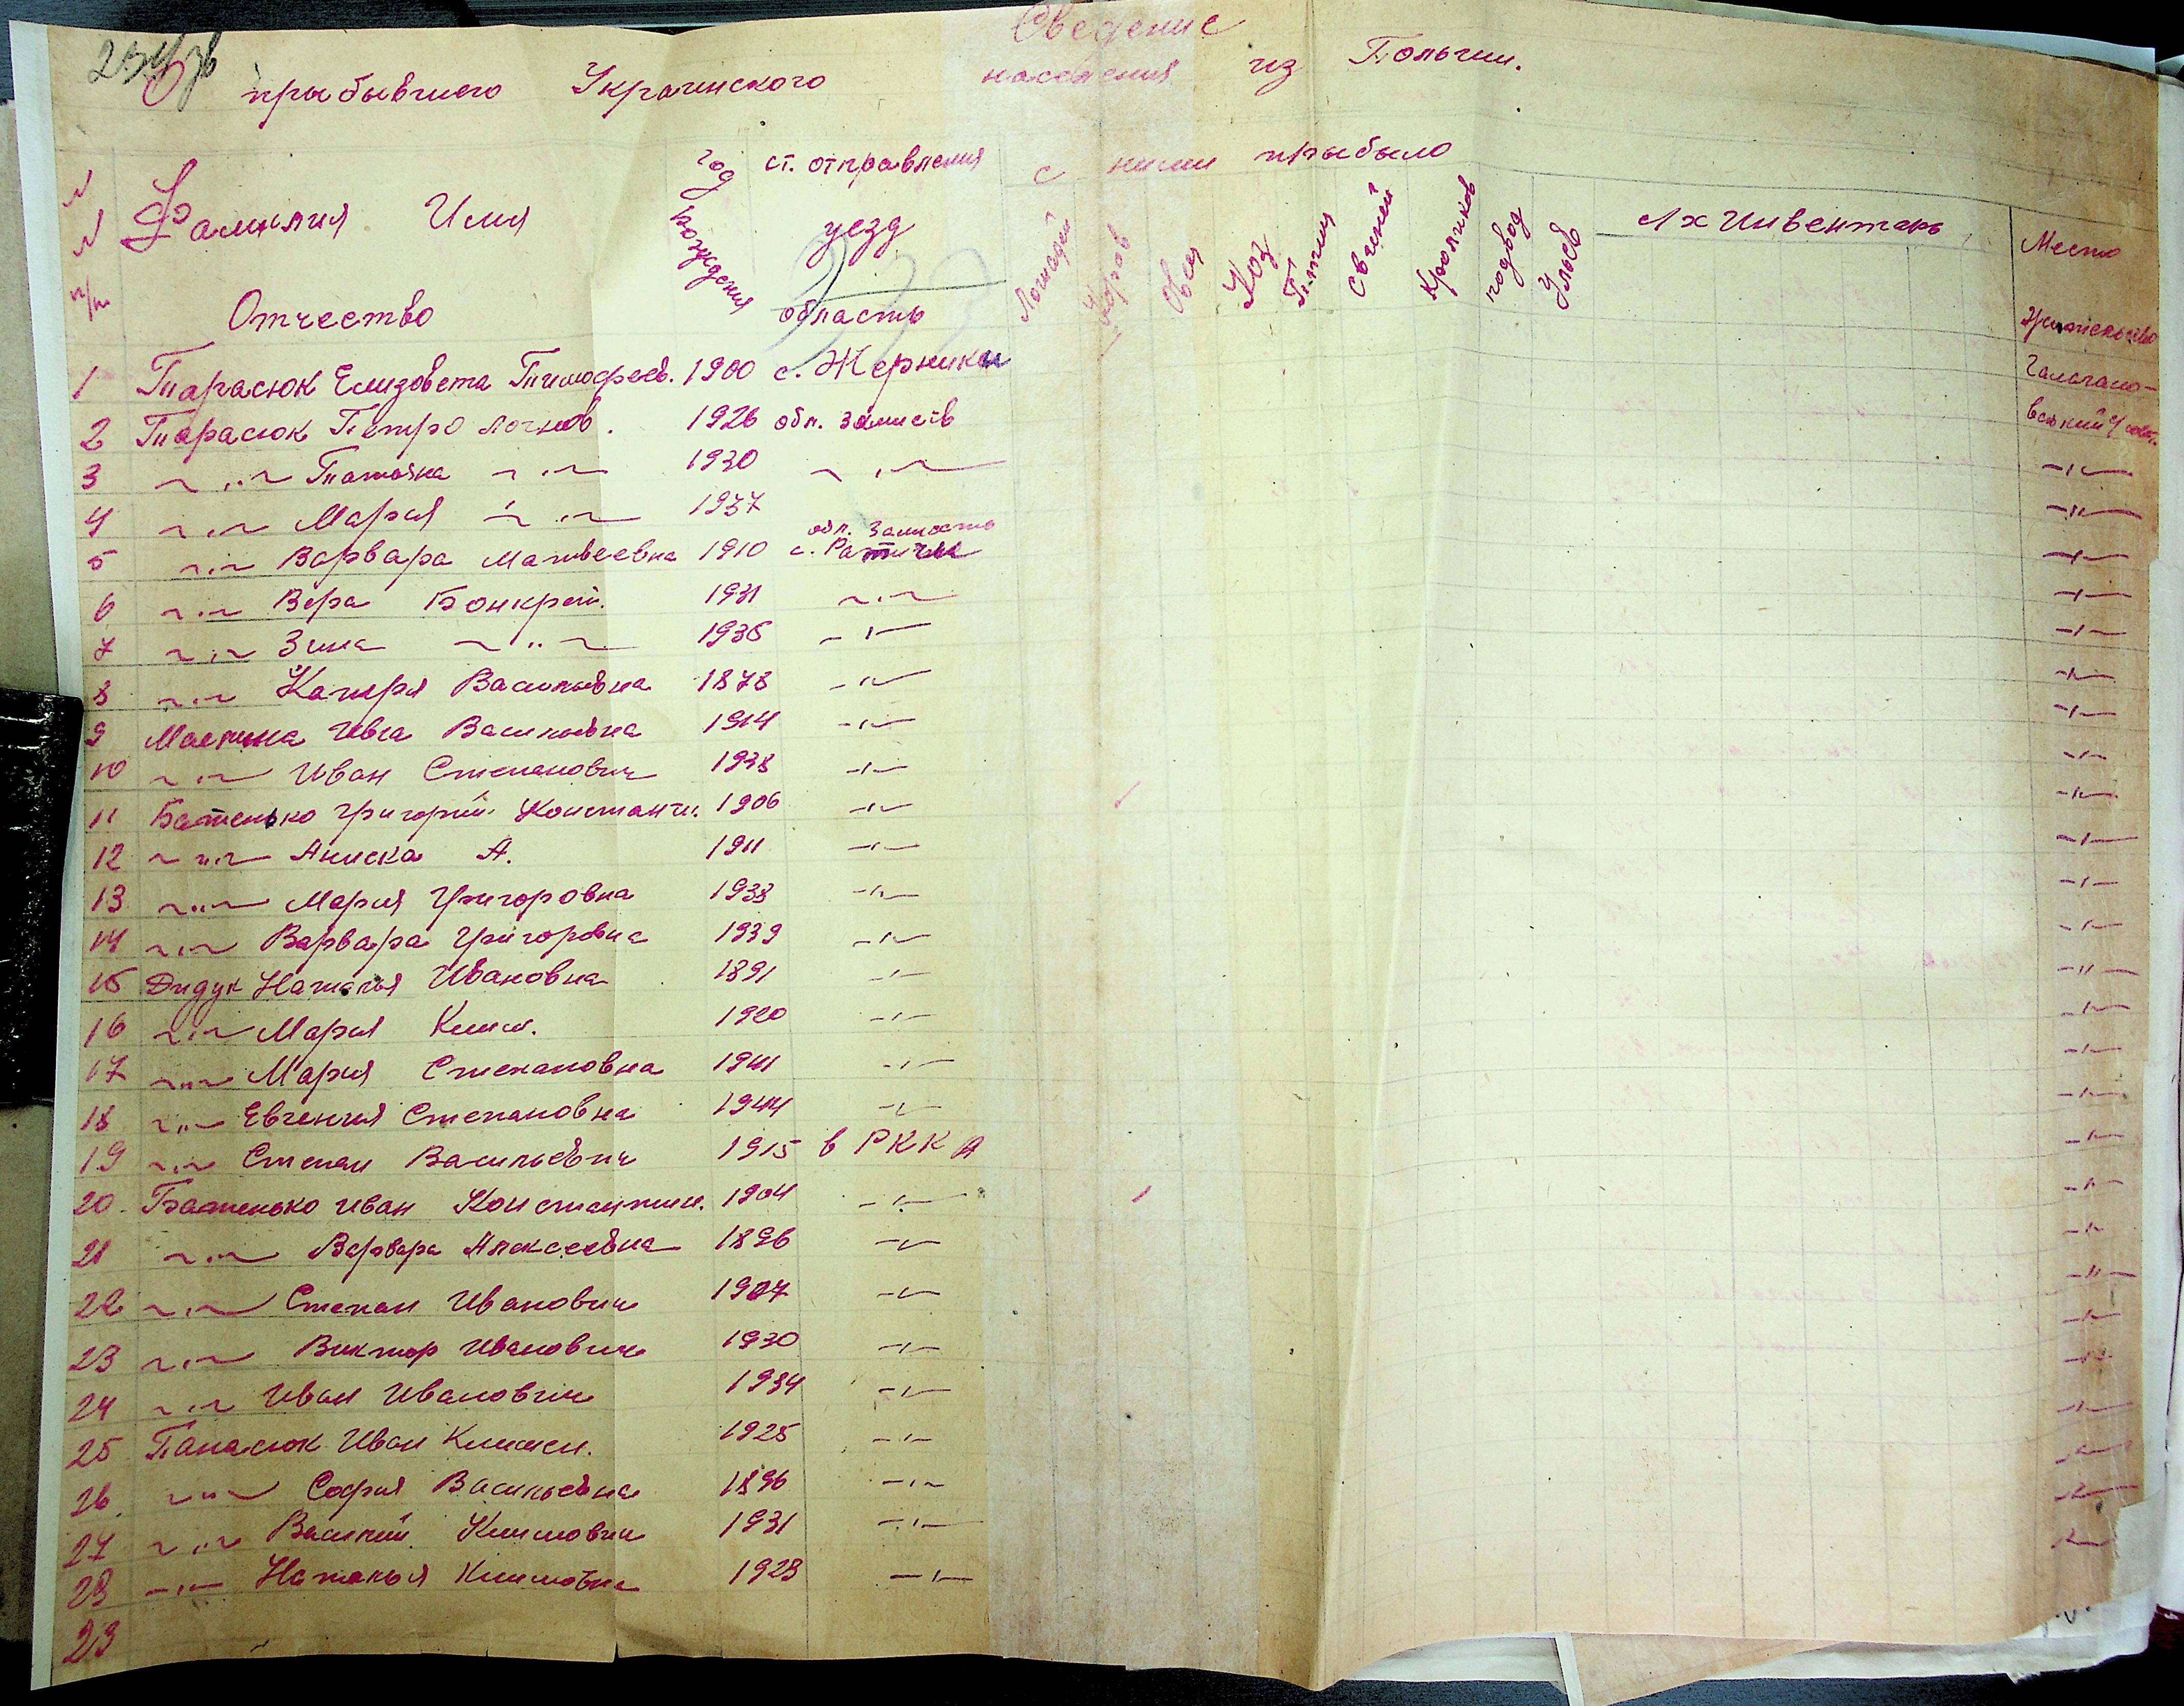 Сведение
О прыбывшего Украинского населения из Польши.
N N п/п
Фамилия Имя Отчество
год рождения
ст. отправления
уезд
область
с ними прыбыло
Лошадей
Коров
Овец
Коз
Птиц
Свиней
Кроликов
подвод
Ульев
с/х Инвентарь
Место жительство
1 Тарасюк Елизовета Тимофеев. 1900 с. Жерники
2 Тарасюк Петро 1926 обл. Замость
3 -"- Татьяна -"- 1930 -"-
4 -"- Мария -"- 1937
обл. Замость
5 -"- Варвара Матвеевна 1910 с. Ратичи -"-
6 -"- Вера 1931 -"- -"-
7 -"- Зина -"- 1935 -"- -"-
8 -"- Катеря Васильевна 1878 -"- -"-
9 Ивга Васильевна 1914 -"- -"-
10 -"- Иван Степанович 1938 -"- -"-
11 Батенько Григорий Константи. 1906 -"- 1 -"-
12 -"- Аниска А. 1911 -"- -"-
13 -"- Мария Григоровна 1933 -"- -"-
14 -"- Варвара Григоровна 1939 -"- -"-
15 Дидук Наталья Ивановна 1891 -"- -"-
16 -"- Мария Клим. 1920 -"- -"-
17 -"- Мария Степановна 1941 -"- -"-
18 -"- Евгения Степановна 1944 -"- -"-
19 -"- Степан Васильевич 1915 в РККА -"-
20. Батенько Иван Константин. 1904 -"- 1 -"-
21 -"- Варвара Алексеевна 1896 -"- -"-
22 -"- Степан Иванович 1927 -"- -"-
23 -"- Виктор Иванович 1930 -"- -"-
24 -"- Иван Иванович 1934 -"- -"-
25 Панасюк Иван Климен. 1925 -"- -"-
26. -"- София Васильевна 1896 -"- -"-
27 -"- Василий Климович 1931 -"- -"-
28 -"- Наталья Климовна 1928 -"-
23